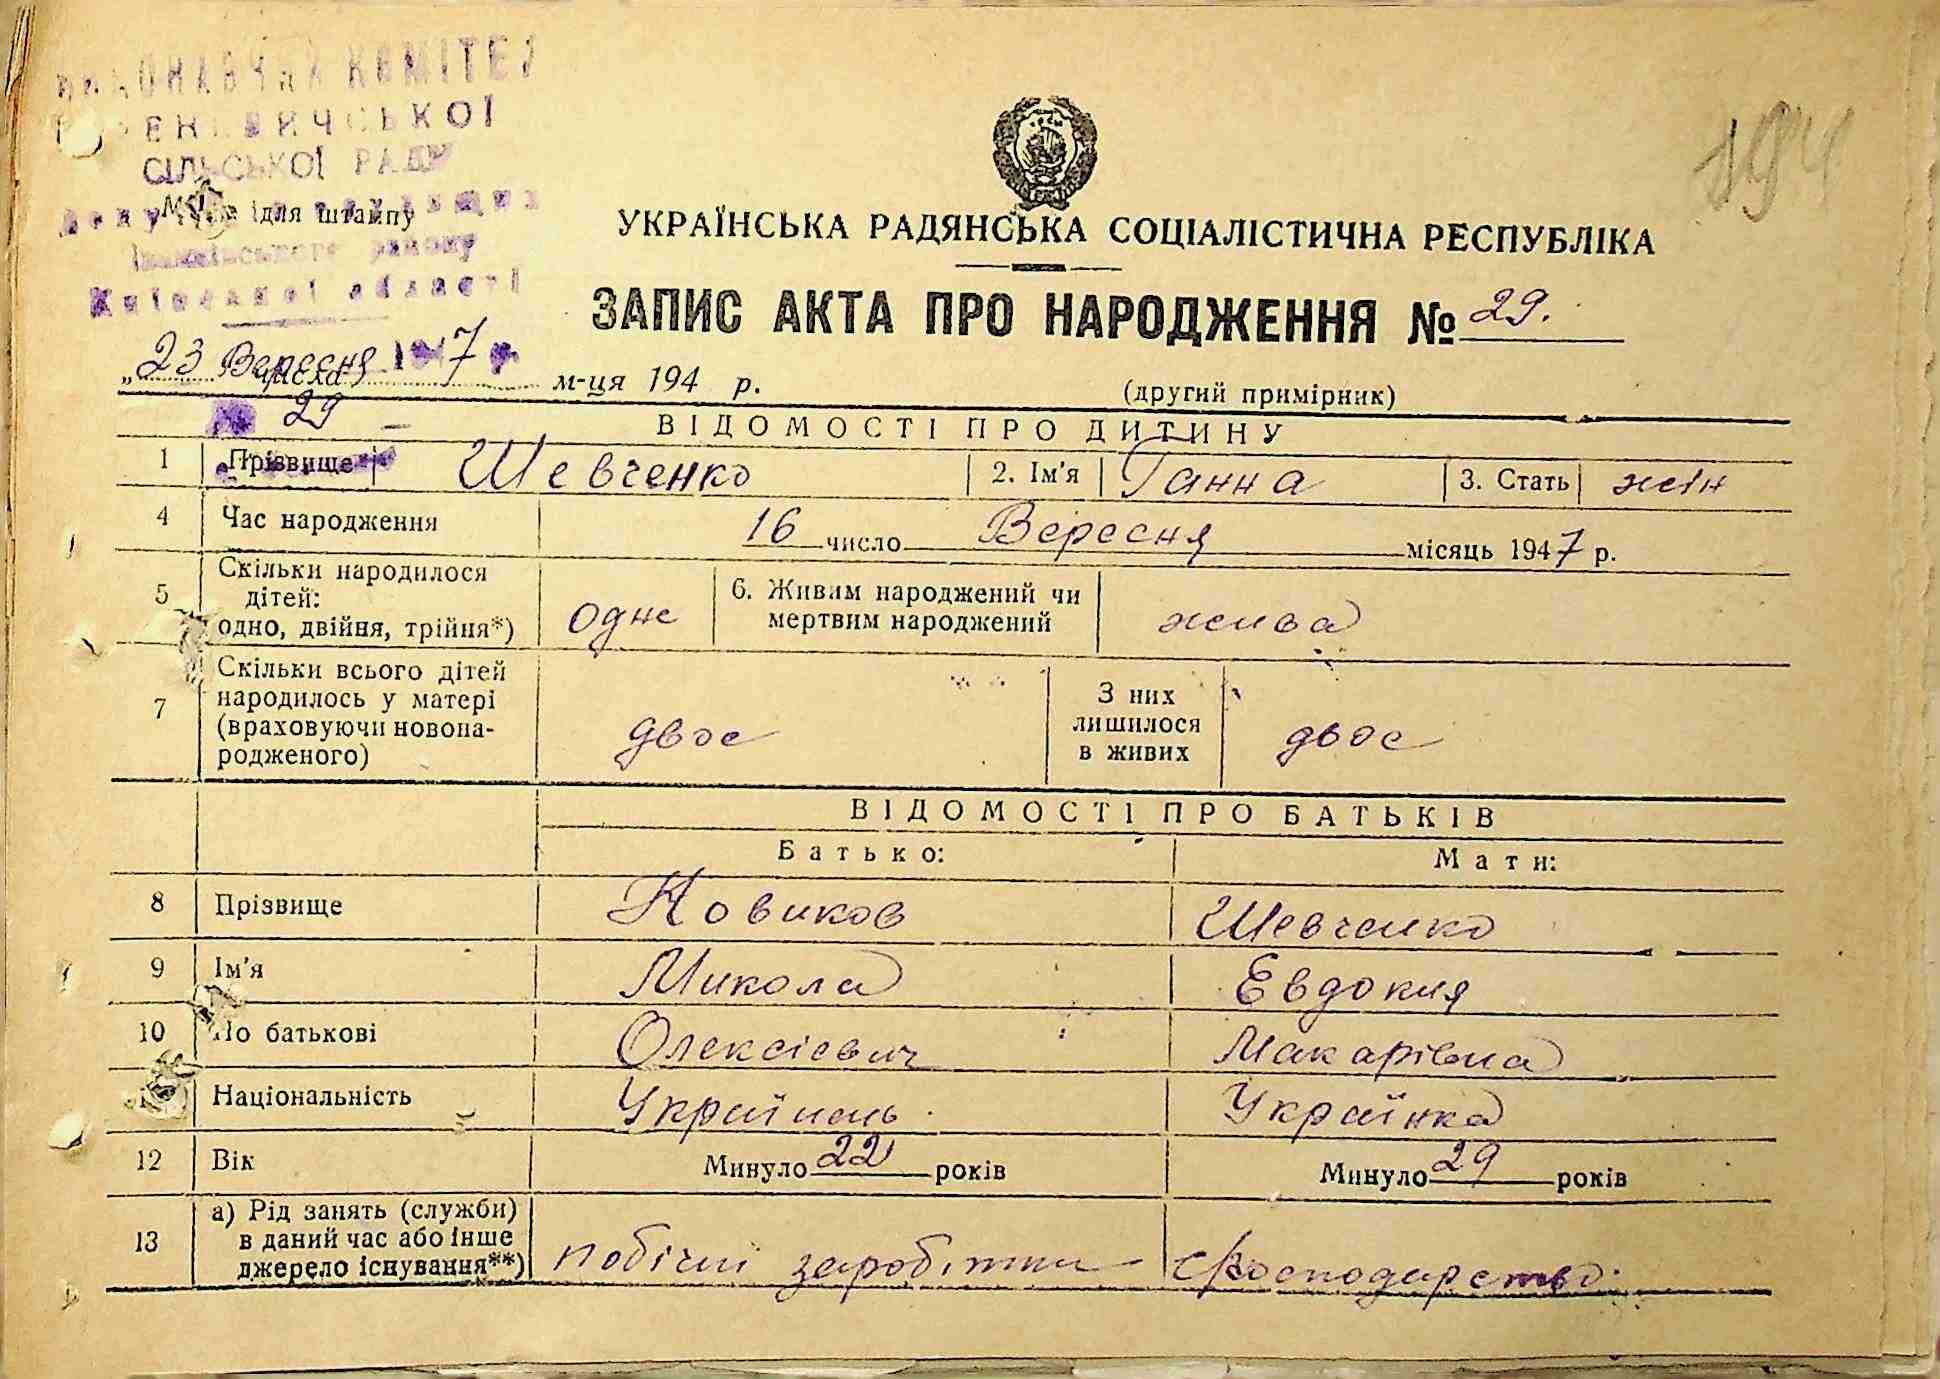 ВИКОНАВЧИЙ КОМІТЕТ
СІЛЬСЬКОЇ РАДИ
для штампу
району
Київської області
194
УКРАЇНСЬКА РАДЯНСЬКА СОЦІАЛІСТИЧНА РЕСПУБЛІКА
ЗАПИС АКТА ПРО НАРОДЖЕННЯ № 29.
„23 Вересня 1947 р. м-ця 194 р.
(другий примірник)
№ 29
ВІДОМОСТІ ПРО ДИТИНУ
1 Прізвище Шевченко 2. Ім'я Ганна 3. Стать жін
4 Час народження 16 число Вересня місяць 1947 р.
5 Скільки народилося дітей: одно, двійня, трійня*) одне 6. Живим народжений чи мертвим народжений жива
7 Скільки всього дітей народилось у матері (враховуючи новонародженого) двоє З них лишилося в живих двоє
ВІДОМОСТІ ПРО БАТЬКІВ
Батько: Мати:
8 Прізвище Новиков Шевченко
9 Ім'я Микола Евдокия
10 По батькові Олексієвич Макарівна
Національність Українець Українка
12 Вік Минуло 22 років Минуло 29 років
13 а) Рід занять (служби) в даний час або інше джерело існування**) побічні заробітки с/господарство.